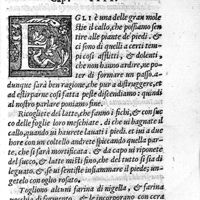 Cap.
EGLI è una delle gran mole
stie il callo, che possiamo sen
tire alle piante de piedi, &
ci sono di quelli a certi tempi
così afflitti, & dolenti,
che non hanno ardire, ne poter
di formare un passo. a-
dunque sarà ben ragione, che pur a distruggere, et
ad estirpare così fatta peste discendiamo: quindi
al nostro parlare poniamo fine.
Ricogliete del latte, che fanno i fichi, & con suc
co delle foglie loro meschiate. di che ui bagnate il
callo, quando ui haurete lauati i piedi. et iui a due
hore con un coltello andrete spiccando quelle par-
ti, che sono morte. & da capo ui riponete
del succo, & latte misti sino, che del tutto si sia di
leguato. & se ui sentiste infiammare il piede; un-
getelo con oglio rosato.
Togliono alcuni farina di nigella, & farina
& le incorporano con cera